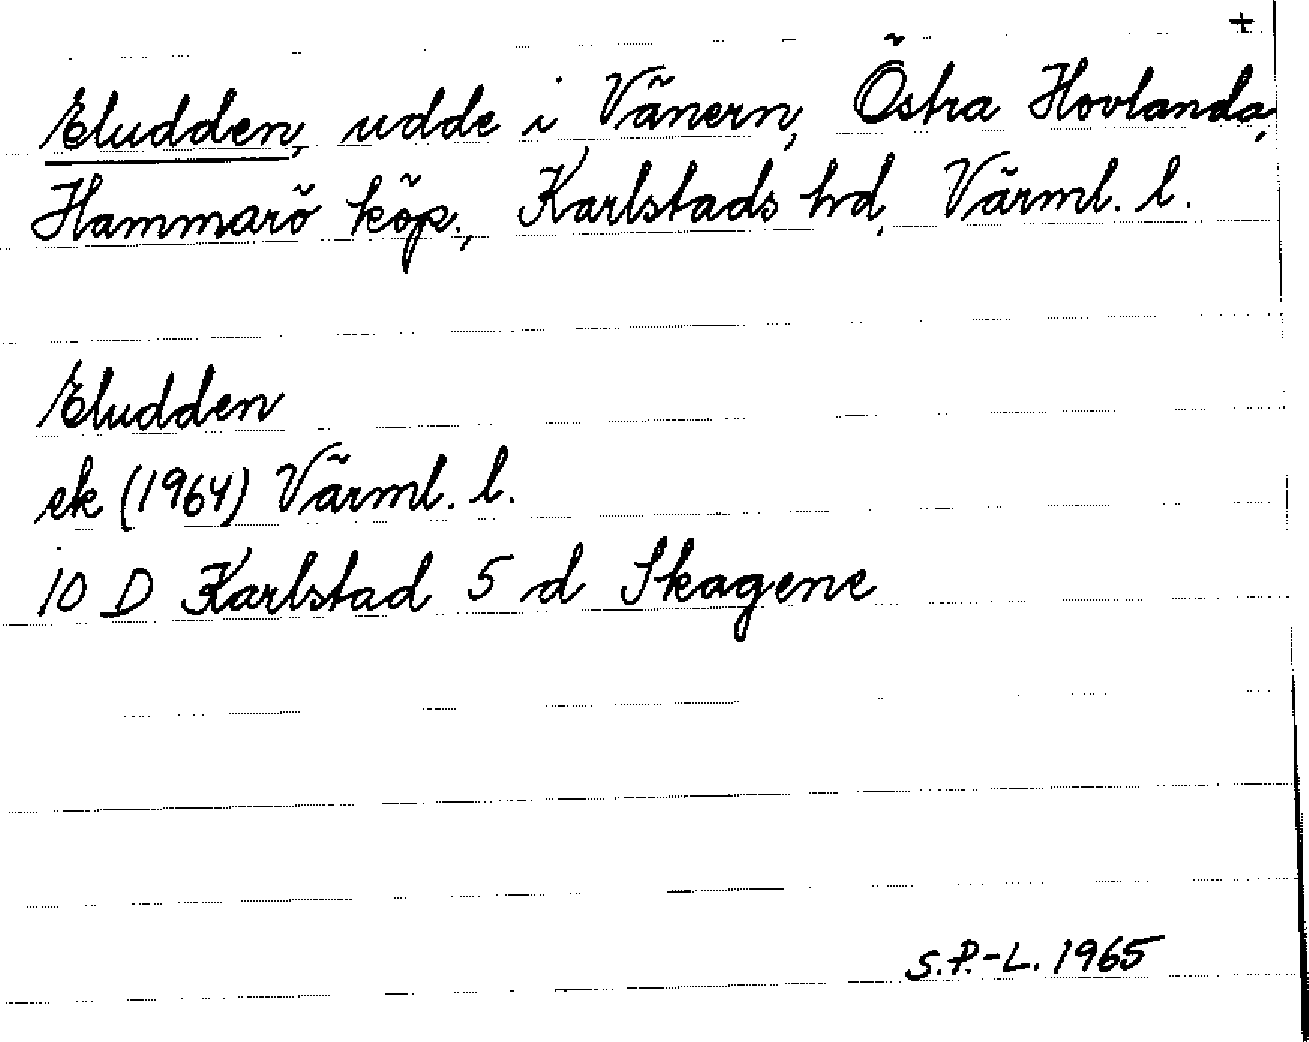 +
Eludden, udde i Vänern, Östra Hovlanda,
Hammarö köp., Karlstads hd, Värml. l.
Eludden
ek (1964) Värml. l.
10 D Karlstad 5 d Skagene
S.P.-L. 1965